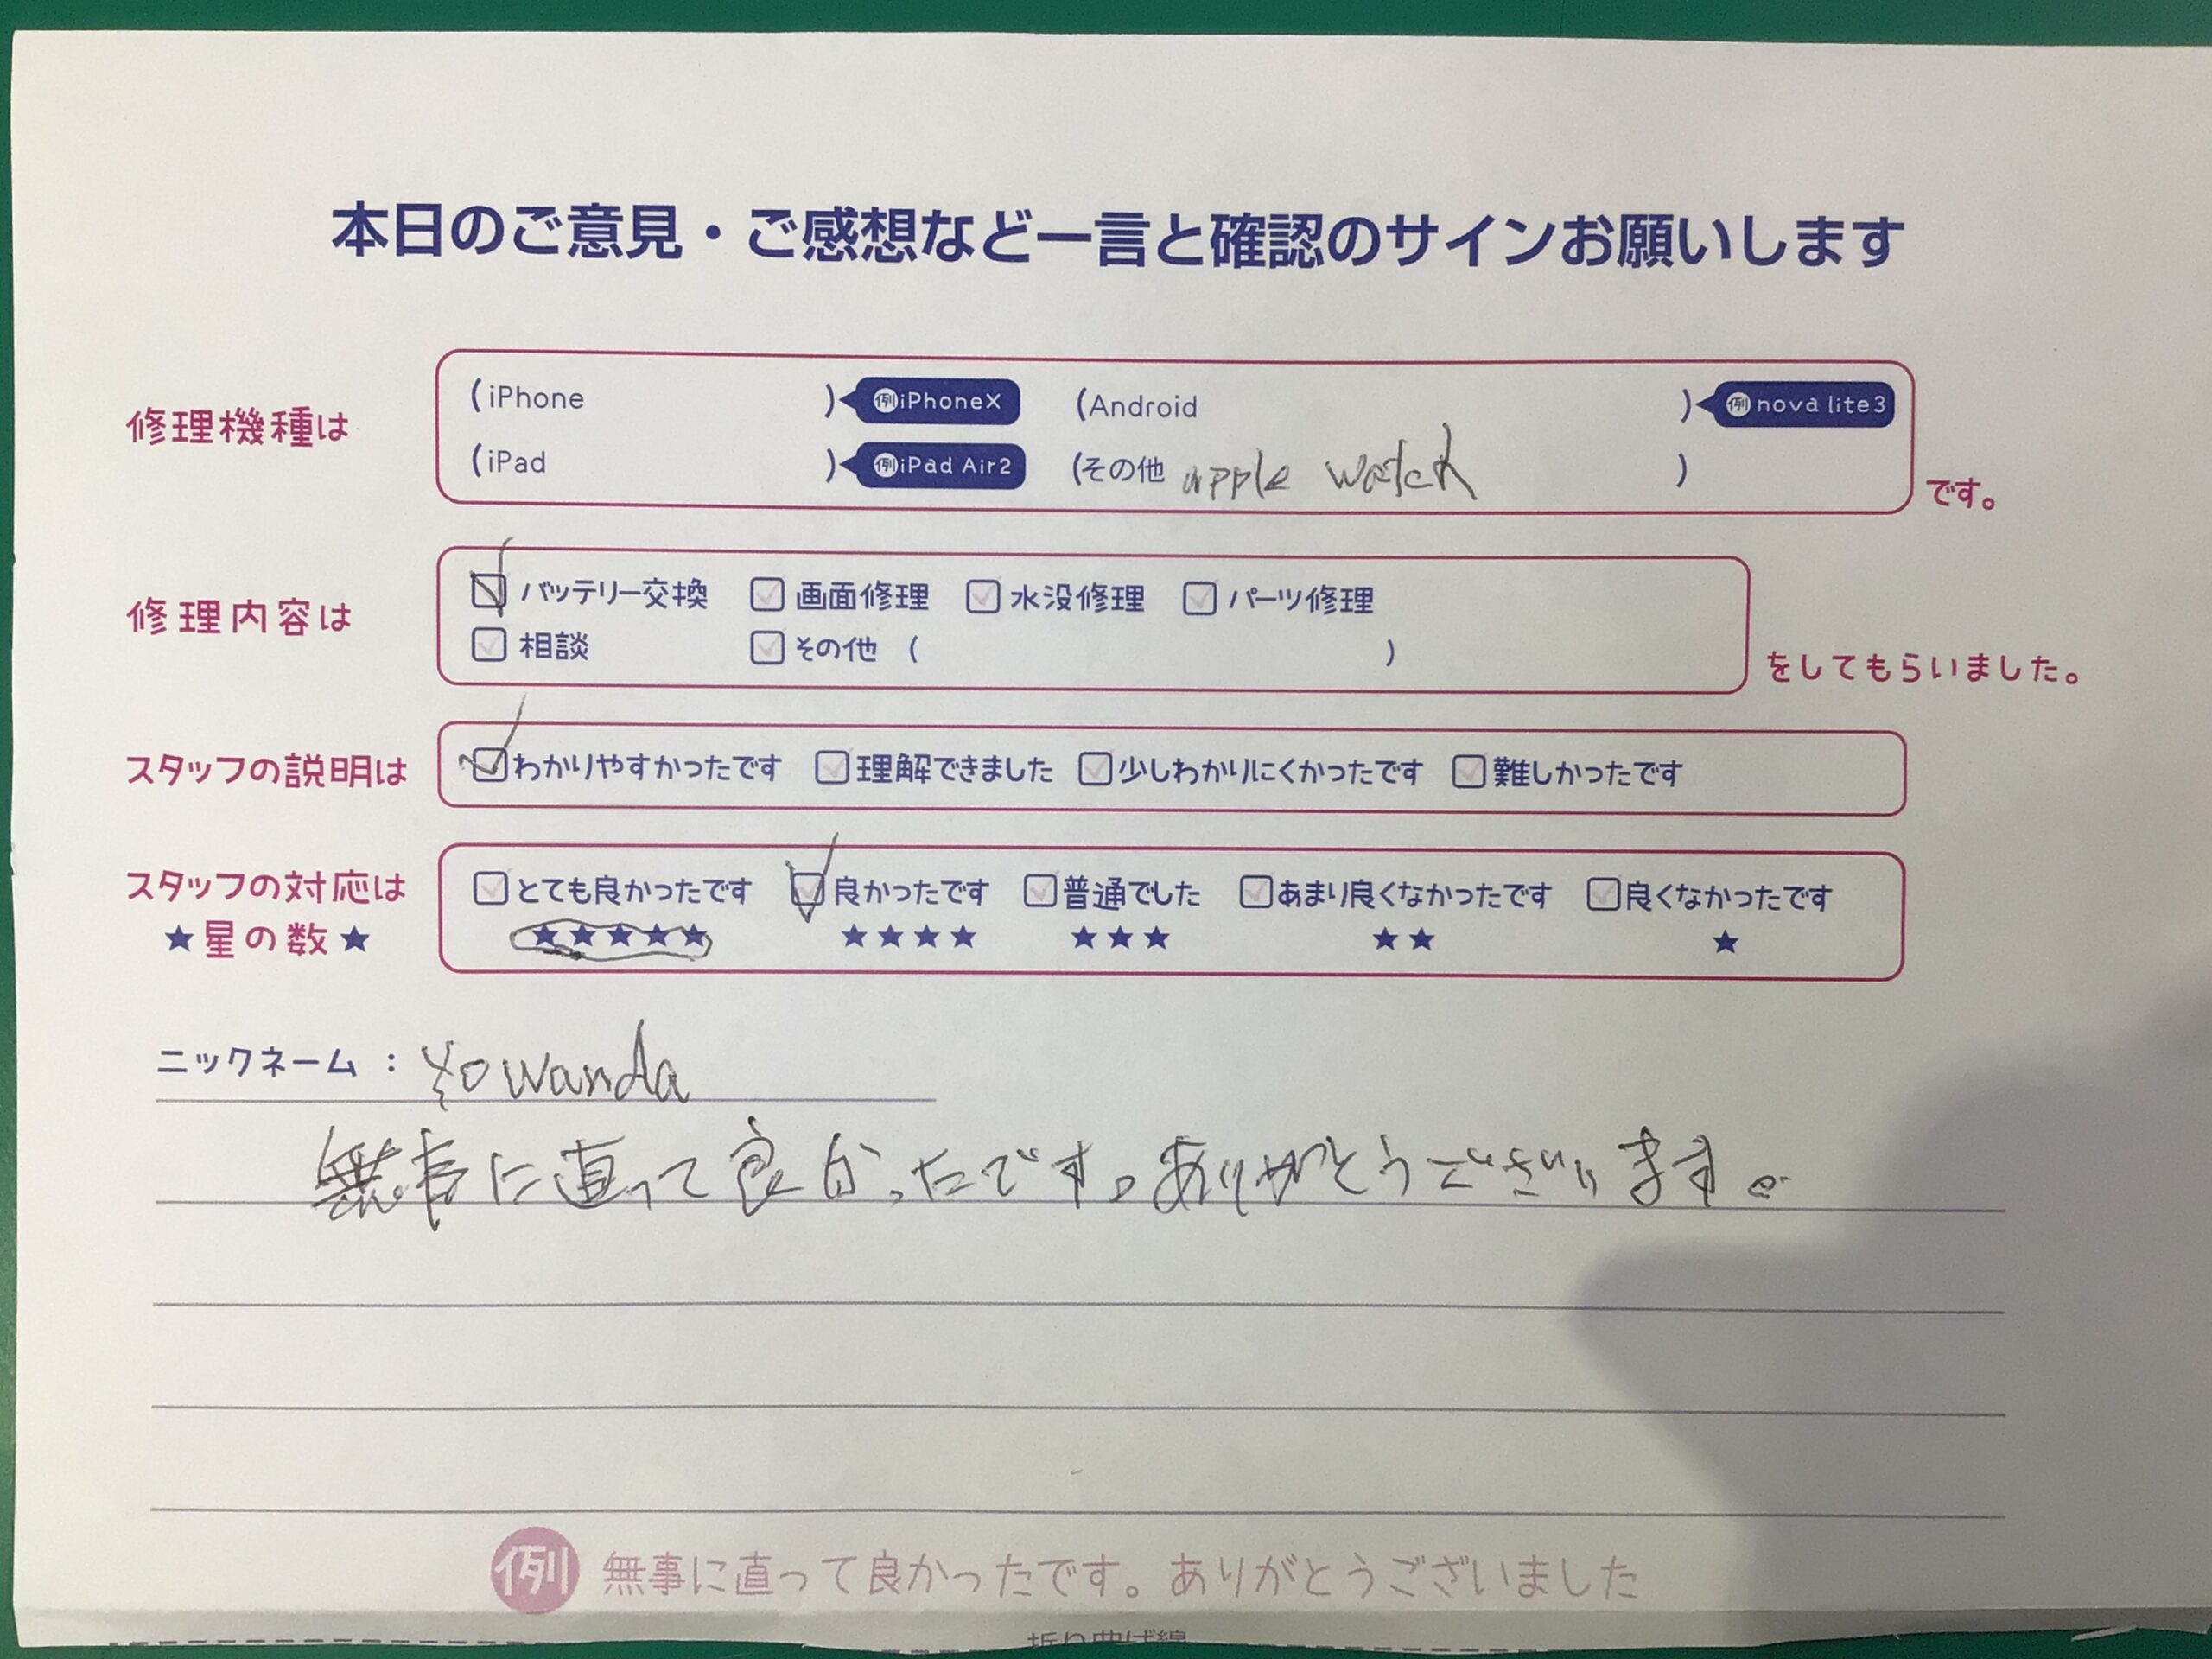 本日のご意見・ご感想など一言と確認のサインお願いします
修理機種は
(iPhone ) 例iPhoneX (Android ) 例 nova lite3
(iPad ) 例iPad Air2 (その他 apple watch )
です。
修理内容は
バッテリー交換 画面修理 水没修理 パーツ修理
相談 その他 ( )
をしてもらいました。
スタッフの説明は
わかりやすかったです 理解できました 少しわかりにくかったです 難しかったです
スタッフの対応は
とても良かったです 良かったです 普通でした あまり良くなかったです 良くなかったです
★星の数★
★★★★★ ★★★★ ★★★ ★★ ★
ニックネーム : yowanda
無事に直って良かったです。ありがとうございます。
例 無事に直って良かったです。ありがとうございました
折り曲げ線